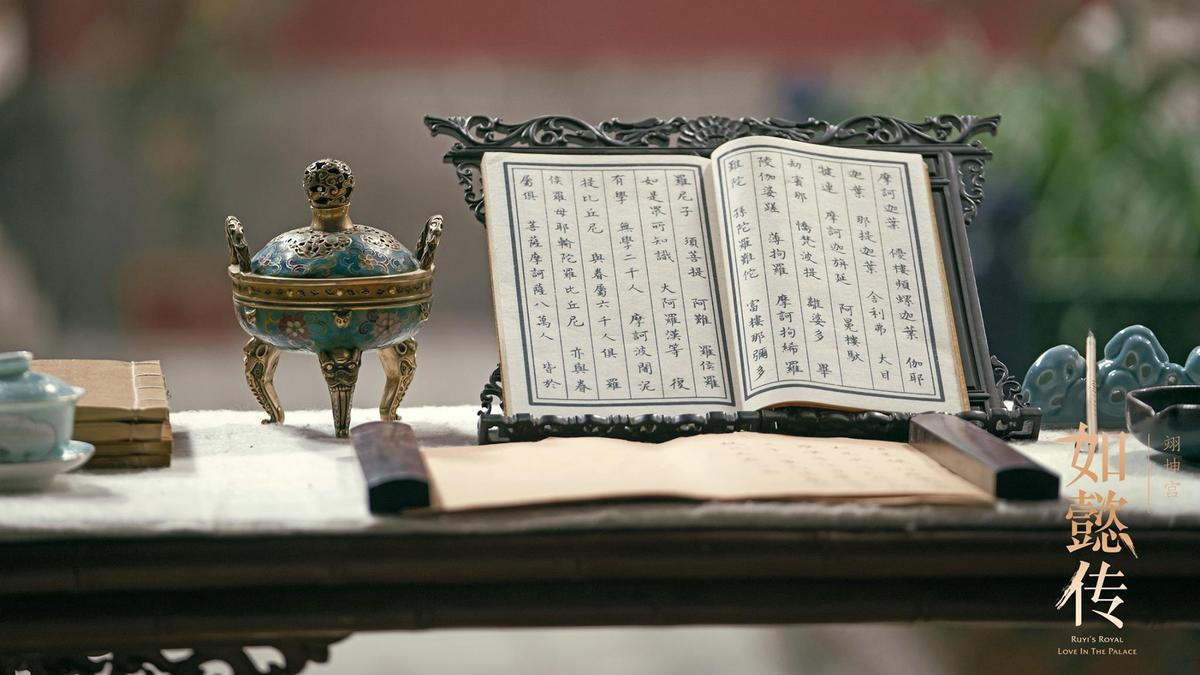 摩訶迦葉 優樓頻螺迦葉 伽耶
迦葉 那提迦葉 舍利弗 大目
犍連 摩訶迦旃延 阿㝹樓馱
劫賓那 憍梵波提 離婆多 畢
陵伽婆蹉 薄拘羅 摩訶拘絺羅
難陀 孫陀羅難陀 富樓那彌多
羅尼子 須菩提 阿難 羅睺羅
如是眾所知識 大阿羅漢等 復
有學 無學二千人 摩訶波闍
提比丘尼 與眷屬六千人俱 羅
睺羅母耶輸陀羅比丘尼 亦與眷
屬俱 菩薩摩訶薩八萬人 皆於
翊坤宫
如懿传
RUYI'S ROYAL
LOVE IN THE PALACE